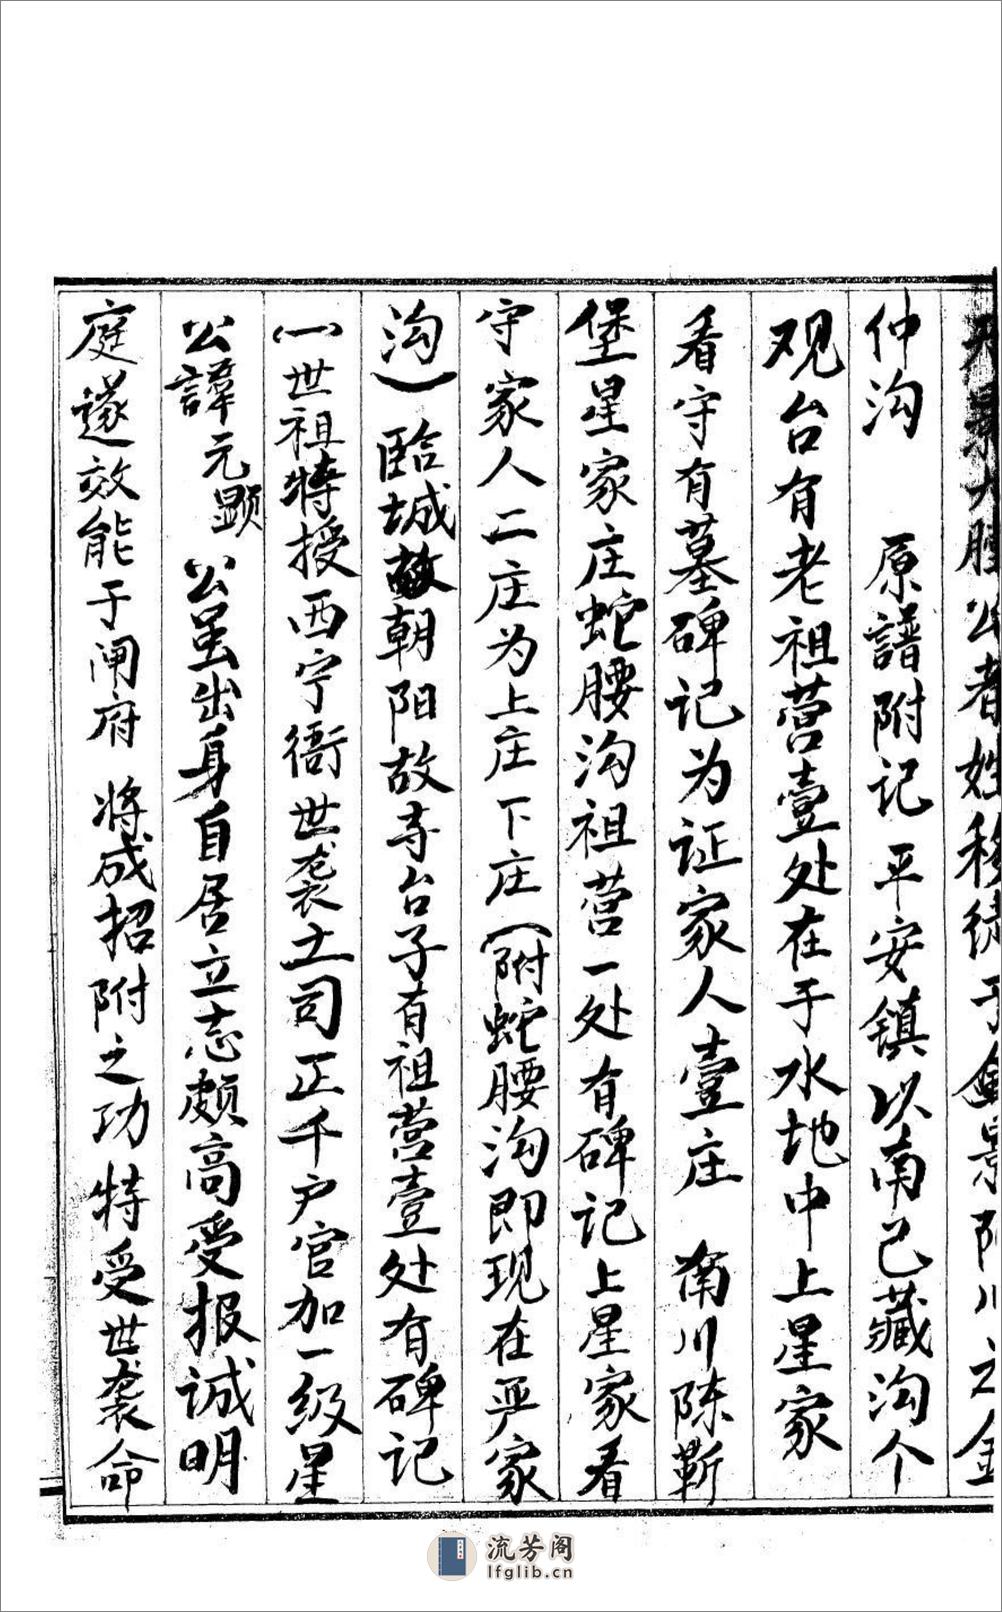 公者姓移徙于 景 川之金
仲沟　原譜附记　平安镇以南己藏沟个
观台有老祖营壹处在于水地中上星家
看守有墓碑记为证家人壹庄　南川陈靳
堡星家庄蛇腰沟祖营一处有碑记上星家看
守家人二庄为上庄下庄（附蛇腰沟即现在严家
沟）臨城故朝阳故寺台子有祖营壹处有碑记
一世祖特授西宁衞世袭土司正千户官加一级星
公諱元顕　公虽出身自居立志颇高受报诚明
庭遂效能于闸府将成招附之功特受世袭命
流芳阁
lfglib.cn